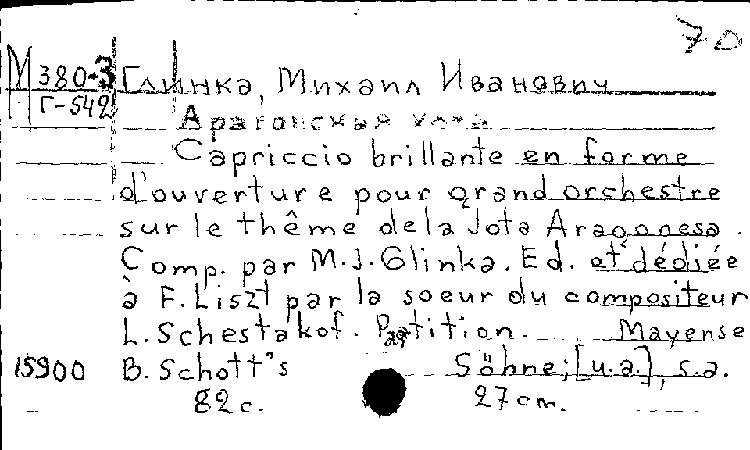 70
М 380-3 Глинка, Михаил Иванович
Г-542
Арагонская хота
Capriccio brillante en forme
d'ouverture pour grand orchestre
sur le thême de la Jota Aragonesa.
Comp. par M.J.Glinka. Ed. et dédiée
à F. Liszt par la soeur du compositeur
L. Schestakof. Partition. Mayense
15900 B. Schott's Söhne; [u.a.], s.a.
82 c. 27 cm.